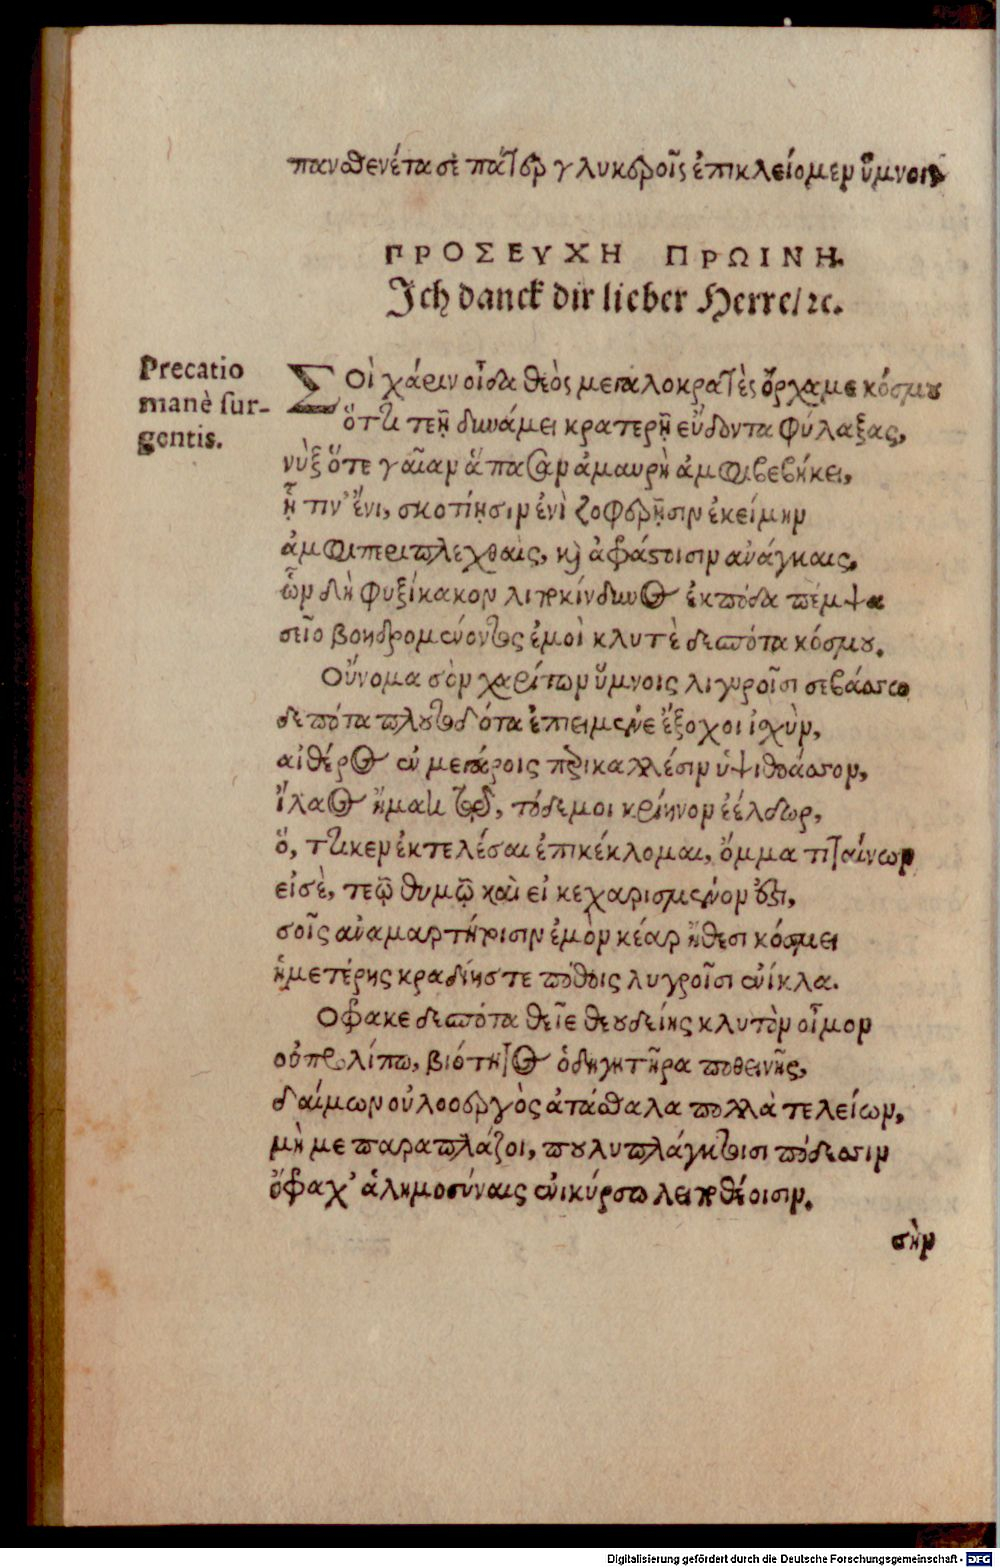 πανσθενέτα σὲ πάτερ γλυκεροῖς ἐπικλείομεν ὕμνοις
ΠΡΟΣΕΥΧΗ ΠΡΩΙΝΗ.
Ich danck dir lieber Herre/ ꝛc.
Precatio
manè sur-
gentis.
ΣΟὶ χάριν οἶδα θεὸς μεγαλοκρατὲς ὄρχαμε κόσμου
ὅττι τεῇ δυνάμει κρατερῇ εὕδοντα φύλαξας,
νὺξ ὅτε γαῖαν ἅπασαν ἀμαυρὴ ἀμφιβεβήκει,
ᾗ τιν' ἔνι, σκοτίῃσιν ἐνὶ ζοφερῇσιν ἐκείμην
ἀμφιπεριπλεχθαὶς, καὶ ἀφάτοισιν ἀνάγκαις,
ὧν δὴ φυξίκακον λιπ κίνδυνος ἐκ πόδα πέμψα
σεῖο βοηδρομεύοντος ἐμοὶ κλυτὲ δεσπότα κόσμου.
Οὔνομα σὸν χαρίτων ὕμνοις λιγυροῖσι σεβάσσω
δεσπότα πλουτοδότα ἐπιειμένε ἔξοχον ἰσχὺν,
αἰθέρος ἐν μεγάροις περικαλλέσιν ὑψιθόαστον,
ἵλαος ἤματι τῷδε, τόδε μοι κρίηνον ἐέλδωρ,
ὅ, ττι κεν ἐκτελέσαι ἐπικέκλομαι, ὄμμα τιταίνων
εἰς σὲ, τεῷ θυμῷ καὶ εἰ κεχαρισμένον ἐστι,
σοῖς ἀναμαρτήτοισιν ἐμὸν κέαρ ἤθεσι κόσμει
ἡμετέρης κραδίης τε πόθοις λυγροῖσι ἐνίκλα.
Ὄφρα κε δεσπότα θεῖε θεουδείης κλυτὸν οἶμον
οὐ προλίπω, βιότητος ὁδηγητῆρα ποθεινῆς,
δαίμων οὐλοοεργὸς ἀτάσθαλα πολλὰ τελείων,
μὴ με παραπλάζοι, πουλυπλάγκτοισι πόδεσσιν
ὄφρα χ' ἀλημοσύναις ἐνικύρσω λευγαλέοισιν.
σὴν